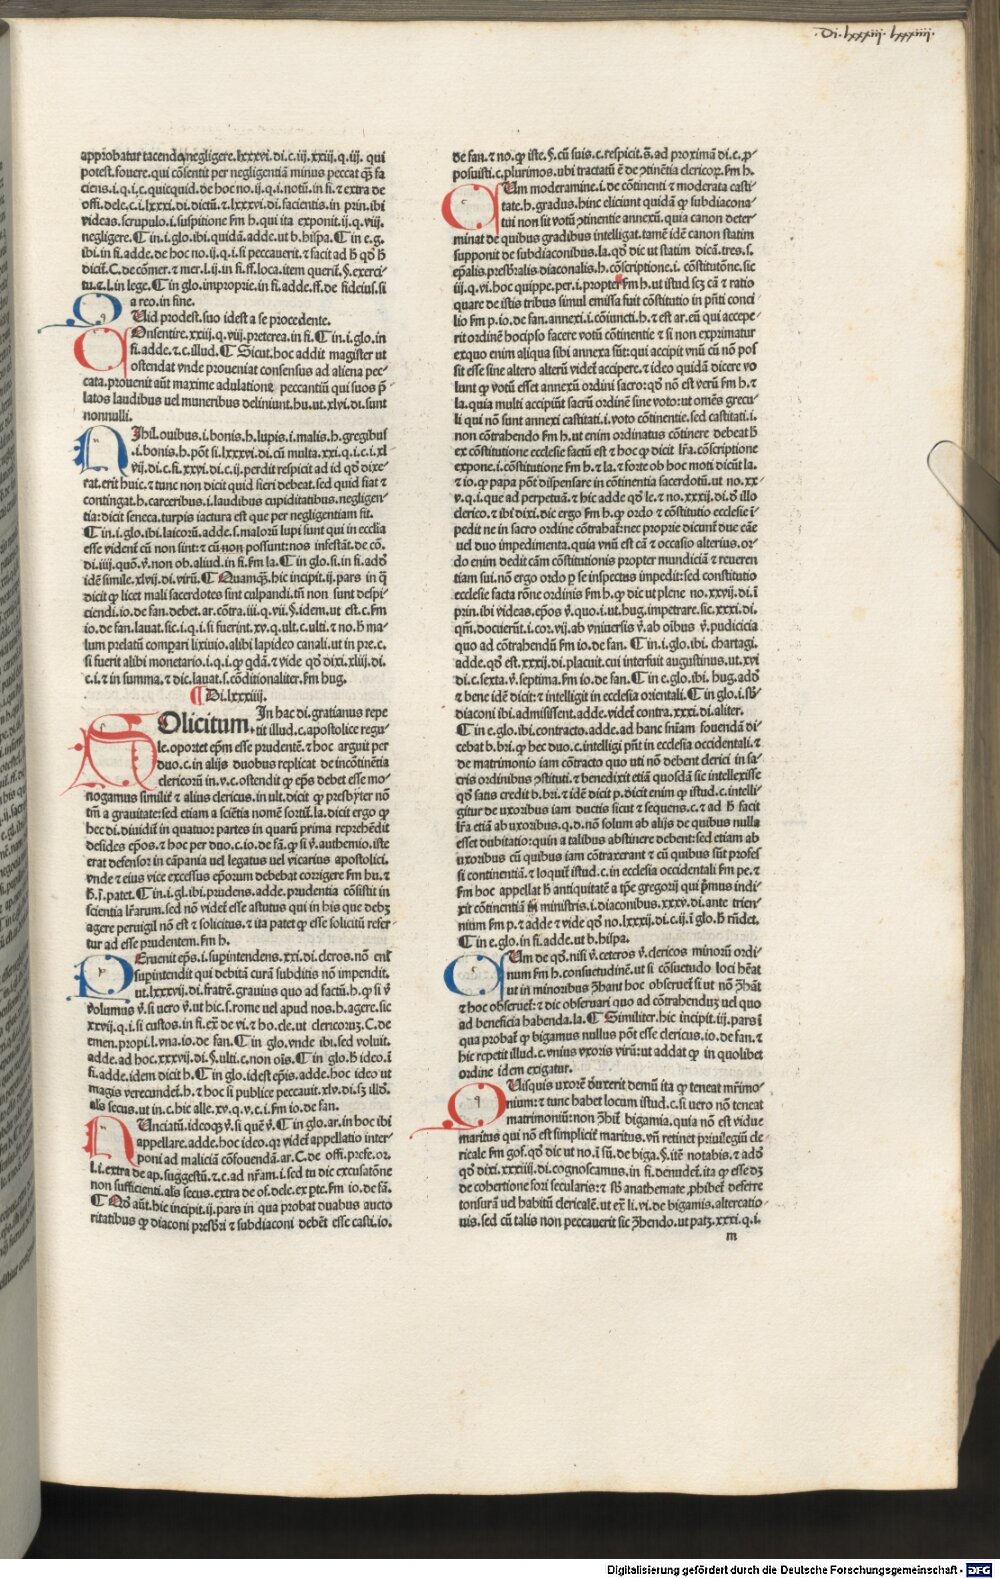 .Di.lxxxiij.lxxxiiij.
app̃obatur tacendo negligere.lxxxvi.di.c.iij.xxiij.q.iij. qui
potest.fouere.qui cõsentit per negligentiã minus peccat qꝫ fa
ciens.i.q.i.c.quicquid.de hoc no.ij.q.i.notũ.in fi.⁊ extra de
offi.dele.c.i.lxxxi.di.dictũ.⁊ lxxxvi.di.facientis.in prin.ibi
videas.scrupulo.i.suspitione ẜm h.qui ita exponit.ij.q.viij.
negligere.¶ in.i.glo.ibi.quidã.adde.ut b.hispa.¶ in e.g.
ibi.in fi.adde.de hoc no.ij.q.i.si peccauerit.⁊ facit ad
dicit̃.C.de cõmer.⁊ mer.l.ij.in fi.ff.loca.item querit̃.§.exerci
tu.⁊.l.in lege.¶ in glo.improprie.in fi.adde.ff.de fideius.si
a reo.in fine.
Uid prodest.suo idest a se procedente.
Onsentire.xxiij.q.viij.preterea.in fi.¶ in.i.glo.in
fi.adde.⁊.c.illud.¶ Sicut.hoc addit magister ut
ostendat vnde proueniat consensus ad aliena pec-
cata.prouenit aũt maxime adulatione peccantiũ qui suos p̃
latos laudibus uel muneribus deliniunt.hu.ut.xlvi.di.sunt
nonnulli.
Ihil.ouibus.i.bonis.h.lupis.i.malis.h.gregibus
.i.bonis.h.põt si.lxxxvi.di.cũ multa.xxi.q.i.c.i.xl
vij.di.c.fi.xxvi.di.c.ij.perdit respicit ad id qð dixe-
rat.erit huic.⁊ tunc non dicit quid fieri debeat.sed quid fiat ⁊
contingat.h.carceribus.i.laudibus cupiditatibus.negligen-
tia:dicit seneca.turpis iactura est que per negligentiam fit.
¶ in.i.glo.ibi.laicorũ.adde.s.malorũ lupi sunt qui in ecclia
esse vident̃ cũ non sint:⁊ cũ non possunt:nos infestãt.de cõ.
di.iiij.quõ.ꝟ.non ob.aliud.in fi.ẜm la.¶ in glo.si.in fi.adð
idẽ simile.xlvij.di.virũ.¶ Quamqꝫ.hic incipit.ij.pars in q̃
dicit ꝙ licet mali sacerdotes sint culpandi.tñ non sunt despi-
ciendi.io.de fan.debet.ar.cõtra.iij.q.vij.§.idem.ut est.c.ẜm
io.de fan.lauat.sic.i.q.i.si fuerint.xv.q.ult.c.ulti.⁊ no.ħ ma-
lum prelatũ compari lixiuio.alibi lapideo canali.ut in pre.c.
si fuerit alibi monetario.i.q.i.ꝙ qdã.⁊ vide qð dixi.xliij.di.
c.i.⁊ in summa.⁊ dic.lauat.s.cõditionaliter.ẜm hug.
¶ Di.lxxxiiij.
Olicitum. In hac di.gratianus repe
tit illud.c.apostolice regu-
le.oportet ep̃m esse prudentẽ.⁊ hoc arguit per
duo.c.in alijs duobus replicat de incõtinẽtia
clericorũ in.v.c.ostendit ꝙ ep̃s debet esse mo-
nogamus similit̃ ⁊ alius clericus.in ult.dicit ꝙ presbyter nõ
tm̃ a grauitate:sed etiam a sciẽtia nomẽ sortit̃.la.dicit ergo ꝙ
hec di.diuidit̃ in quatuor partes in quarũ prima reprehẽdit
desides ep̃os.⁊ hoc per duo.c.io.de fã.ꝙ si ꝟ.anthemio.iste
erat defensor in cãpania uel legatus uel vicarius apostolici.
vnde ⁊ eius vice excessus ep̃orum debebat corrigere ẜm hu.⁊
patet.¶ in.i.gl.ibi.prudens.adde.prudentia cõsistit in
scientia lr̃arum.sed nõ videt̃ esse astutus qui in his que debꝫ
agere peruigil nõ est ⁊ solicitus.⁊ ita patet ꝙ esse solicitũ refer
tur ad esse prudentem.ẜm h.
Eruenit ep̃s.i.sup̃intendens.xxi.di.cleros.nõ eni̅
sup̃intendit qui debitã curã subditis nõ impendit.
ut.lxxxvij.di.fratrẽ.grauius quo ad factũ.h.ꝙ si ꝟ
volumus ꝟ.si uero ꝟ.ut hic.s.rome uel apud nos.h.agere.sic
xxvij.q.i.si custos.in fi.ex̃ de vi.⁊ ho.cle.ut clericoruꝫ.C.de
emen.propi.l.vna.io.de fan.¶ in glo.vnde ibi.sed voluit.
adde.ad hoc.xxxvij.di.§.ulti.c.non oĩs.¶ in glo.ħ ideo.ĩ
fi.adde.idem dicit h.¶ in glo.idest ep̃is.adde.hoc ideo ut
magis verecundet̃.h.⁊ hoc si publice peccauit.xlv.di.sꝫ illð.
als̃ secus.ut in.c.hic alle.xv.q.v.c.i.ẜm io.de fan.
Unciatũ.ideoqꝫ ꝟ.si quẽ ꝟ.¶ in glo.ar.in hoc ibi
appellare.adde.hoc ideo.qꝛ videt̃ appellatio inter-
poni ad maliciã cõfouendã.ar.C.de offi.prefe.or.
l.i.extra de ap.suggestũ.⁊.c.ad nr̃am.i.sed tu dic excusatõne
non sufficienti.als̃ secus.extra de of.dele.ex pte.ẜm io.de fã.
¶ aũt.hic incipit.ij.pars in qua probat duabus aucto
ritatibus ꝙ diaconi presbri ⁊ subdiaconi debẽt esse casti.io.
de fan.⁊ no.ꝙ iste.§.cũ suis.c.respicit.s̃.ad proximã di.c.ꝓ-
posuisti.c.plurimos.ubi tractatũ ẽ de ꝯtinẽtia clericoꝝ.ẜm h.
Um moderamine.i.de cõtinenti ⁊ moderata casti-
tate.h.gradus.hinc eliciunt quidã ꝙ subdiacona-
tui non sit votũ ꝯtinentie annexũ.quia canon deter-
minat de quibus gradibus intelligat.tamẽ idẽ canon statim
supponit de subdiaconibus.la.qð dic ut statim dicã.tres.s.
ep̃alis.presb̃ralis.diaconalis.h.cõscriptione.i. cõstitutõne.sic
iij.q.vi.hoc quippe.per.i.propter ẜm h.ut istud scꝫ cã ⁊ ratio
quare de istis tribus simul emissa fuit cõstitutio in pñti conci
lio ẜm p.io.de fan.annexi.i.cõiuncti.h.⁊ est ar.eũ qui accepe-
rit ordinẽ hocipso facere votũ cõtinentie ⁊ si non exprimatur
exquo enim aliqua sibi annexa sũt:qui accipit vnũ cũ nõ pos
sit esse sine altero alterũ videt̃ accipere.⁊ ideo quidã dicere vo
lunt ꝙ votũ esset annexũ ordini sacro:qð nõ est verũ ẜm h.⁊
la.quia multi accipiũt sacrũ ordinẽ sine voto:ut omẽs grecu-
li qui nõ sunt annexi castitati.i.voto cõtinentie.sed castitati.i.
non cõtrahendo ẜm h.ut enim ordinatus cõtinere debeat ħ
ex cõstitutione ecclesie factũ est ⁊ hoc ꝙ dicit lr̃a.cõscriptione
expone.i.cõstitutione ẜm h.⁊ la.⁊ forte ob hoc moti dicũt la.
⁊ io.ꝙ papa põt dispensare in cõtinentia sacerdotũ.ut no.xx-
v.q.i.que ad perpetuã.⁊ hic adde qð le.⁊ no.xxxij.di.ð illo
clerico.⁊ ibi dixi.dic ergo ẜm h.ꝙ ordo ⁊ cõstitutio ecclesie ĩ-
pedit ne in sacro ordine cõtrahat̃:nec proprie dicunt̃ due cãe
uel duo impedimenta.quia vnũ est cã ⁊ occasio alterius.or-
do enim dedit cãm cõstitutionis propter mundiciã ⁊ reueren
tiam sui.nõ ergo ordo p se inspectus impedit:sed constitutio
ecclesie facta rõne ordinis ẜm h.ꝙ dic ut plene no.xxvij.di.ĩ
prin.ibi videas.ep̃os ꝟ.quo.i.ut hug.impetrare.sic.xxxi.di.
qm̃.docuerũt.i.cor.vij.ab vniuersis ꝟ.ab oĩbus ꝟ.pudicicia
quo ad cõtrahendũ ẜm io.de fan. ¶ in.i.glo.ibi. chartagi.
adde.qð est.xxxij.di.placuit.cui interfuit augustinus.ut.xvi
di.c.sexta.ꝟ.septima.ẜm io.de fan.¶ in e.glo.ibi.hug.adð
⁊ bene idẽ dicit:⁊ intelligit in ecclesia orientali.¶ in glo.i.sb̃-
diaconi ibi.admisissent.adde.videt̃ contra.xxxi.di.aliter.
¶ in e.glo.ibi.contracto.adde.ad hanc sniam fouendã di-
cebat b.bri.ꝙ hec duo.c.intelligi pñt in ecclesia occidentali.⁊
de matrimonio iam cõtracto quo uti nõ debent clerici in sa-
cris ordinibus ꝯstituti.⁊ benedixit etiã quosdã sic intellexisse
qð satis credit b.bri.⁊ idẽ dicit p.dicit enim ꝙ istud.c.intelli-
gitur de uxoribus iam ductis sicut ⁊ sequens.c.⁊ ad ħ facit
lr̃a etiã ab uxoribus.q.d.nõ solum ab alijs de quibus nulla
esset dubitatio:quin a talibus abstinere debent:sed etiam ab
uxoribus cũ quibus iam cõtraxerant ⁊ cũ quibus sũt profes
si continentiã.⁊ loquit̃ istud.c.in ecclesia occidentali ẜm pe.⁊
ẜm hoc appellat ħ antiquitatẽ a tp̃e gregorij qui p̃mus indi-
xit cõtinentiã in ministris.i.diaconibus.xxxv.di.ante trien-
nium ẜm p.⁊ adde ⁊ vide qð no.lxxxij.di.c.ij.ĩ glo.ħ rñdet.
¶ in e.glo.in fi.adde.ut b.hispa.
Um de qð.nisi ꝟ.ceteros ꝟ.clericos minorũ ordi-
num ẜm h.consuetudinẽ.ut si cõsuetudo loci hẽat
ut in minoribus ꝯhant hoc obseruet̃ si ut nõ ꝯhãt
⁊ hoc obseruet̃:⁊ dic obseruari quo ad cõtrahenduꝫ uel quo
ad beneficia habenda.la.¶ Similiter.hic incipit.iij.pars ĩ
qua probat ꝙ bigamus nullus põt esse clericus.io.de fan.⁊
hic repetit illud.c.vnius vxoris virũ:ut addat ꝙ in quolibet
ordine idem exigatur.
Uisquis uxorẽ duxerit demũ ita ꝙ teneat mr̃imo-
nium:⁊ tunc habet locum istud.c.si uero nõ teneat
matrimoniũ:non ꝯhit̃ bigamia.quia nõ est vidue
maritus qui nõ est simplicit̃ maritus.vñ retinet priuilegiũ cle
ricale ẜm gof.qð dic ut no.ĩ sũ.de biga.§.itẽ notabis.⁊ adð
qð dixi.xxxiiij.di.cognoscamus.in fi.denudet̃.ita ꝙ esse dꝫ
de cohertione fori secularis:⁊ sb̃ anathemate ꝓhibet̃ deferre
tonsurã uel habitũ clericalẽ.ut ex̃ li.vi.de bigamis.altercatio-
nis.sed cũ talis non peccauerit sic ꝯhendo.ut patꝫ.xxxi.q.i.
m
Digitalisierung gefördert durch die Deutsche Forschungsgemeinschaft - DFG